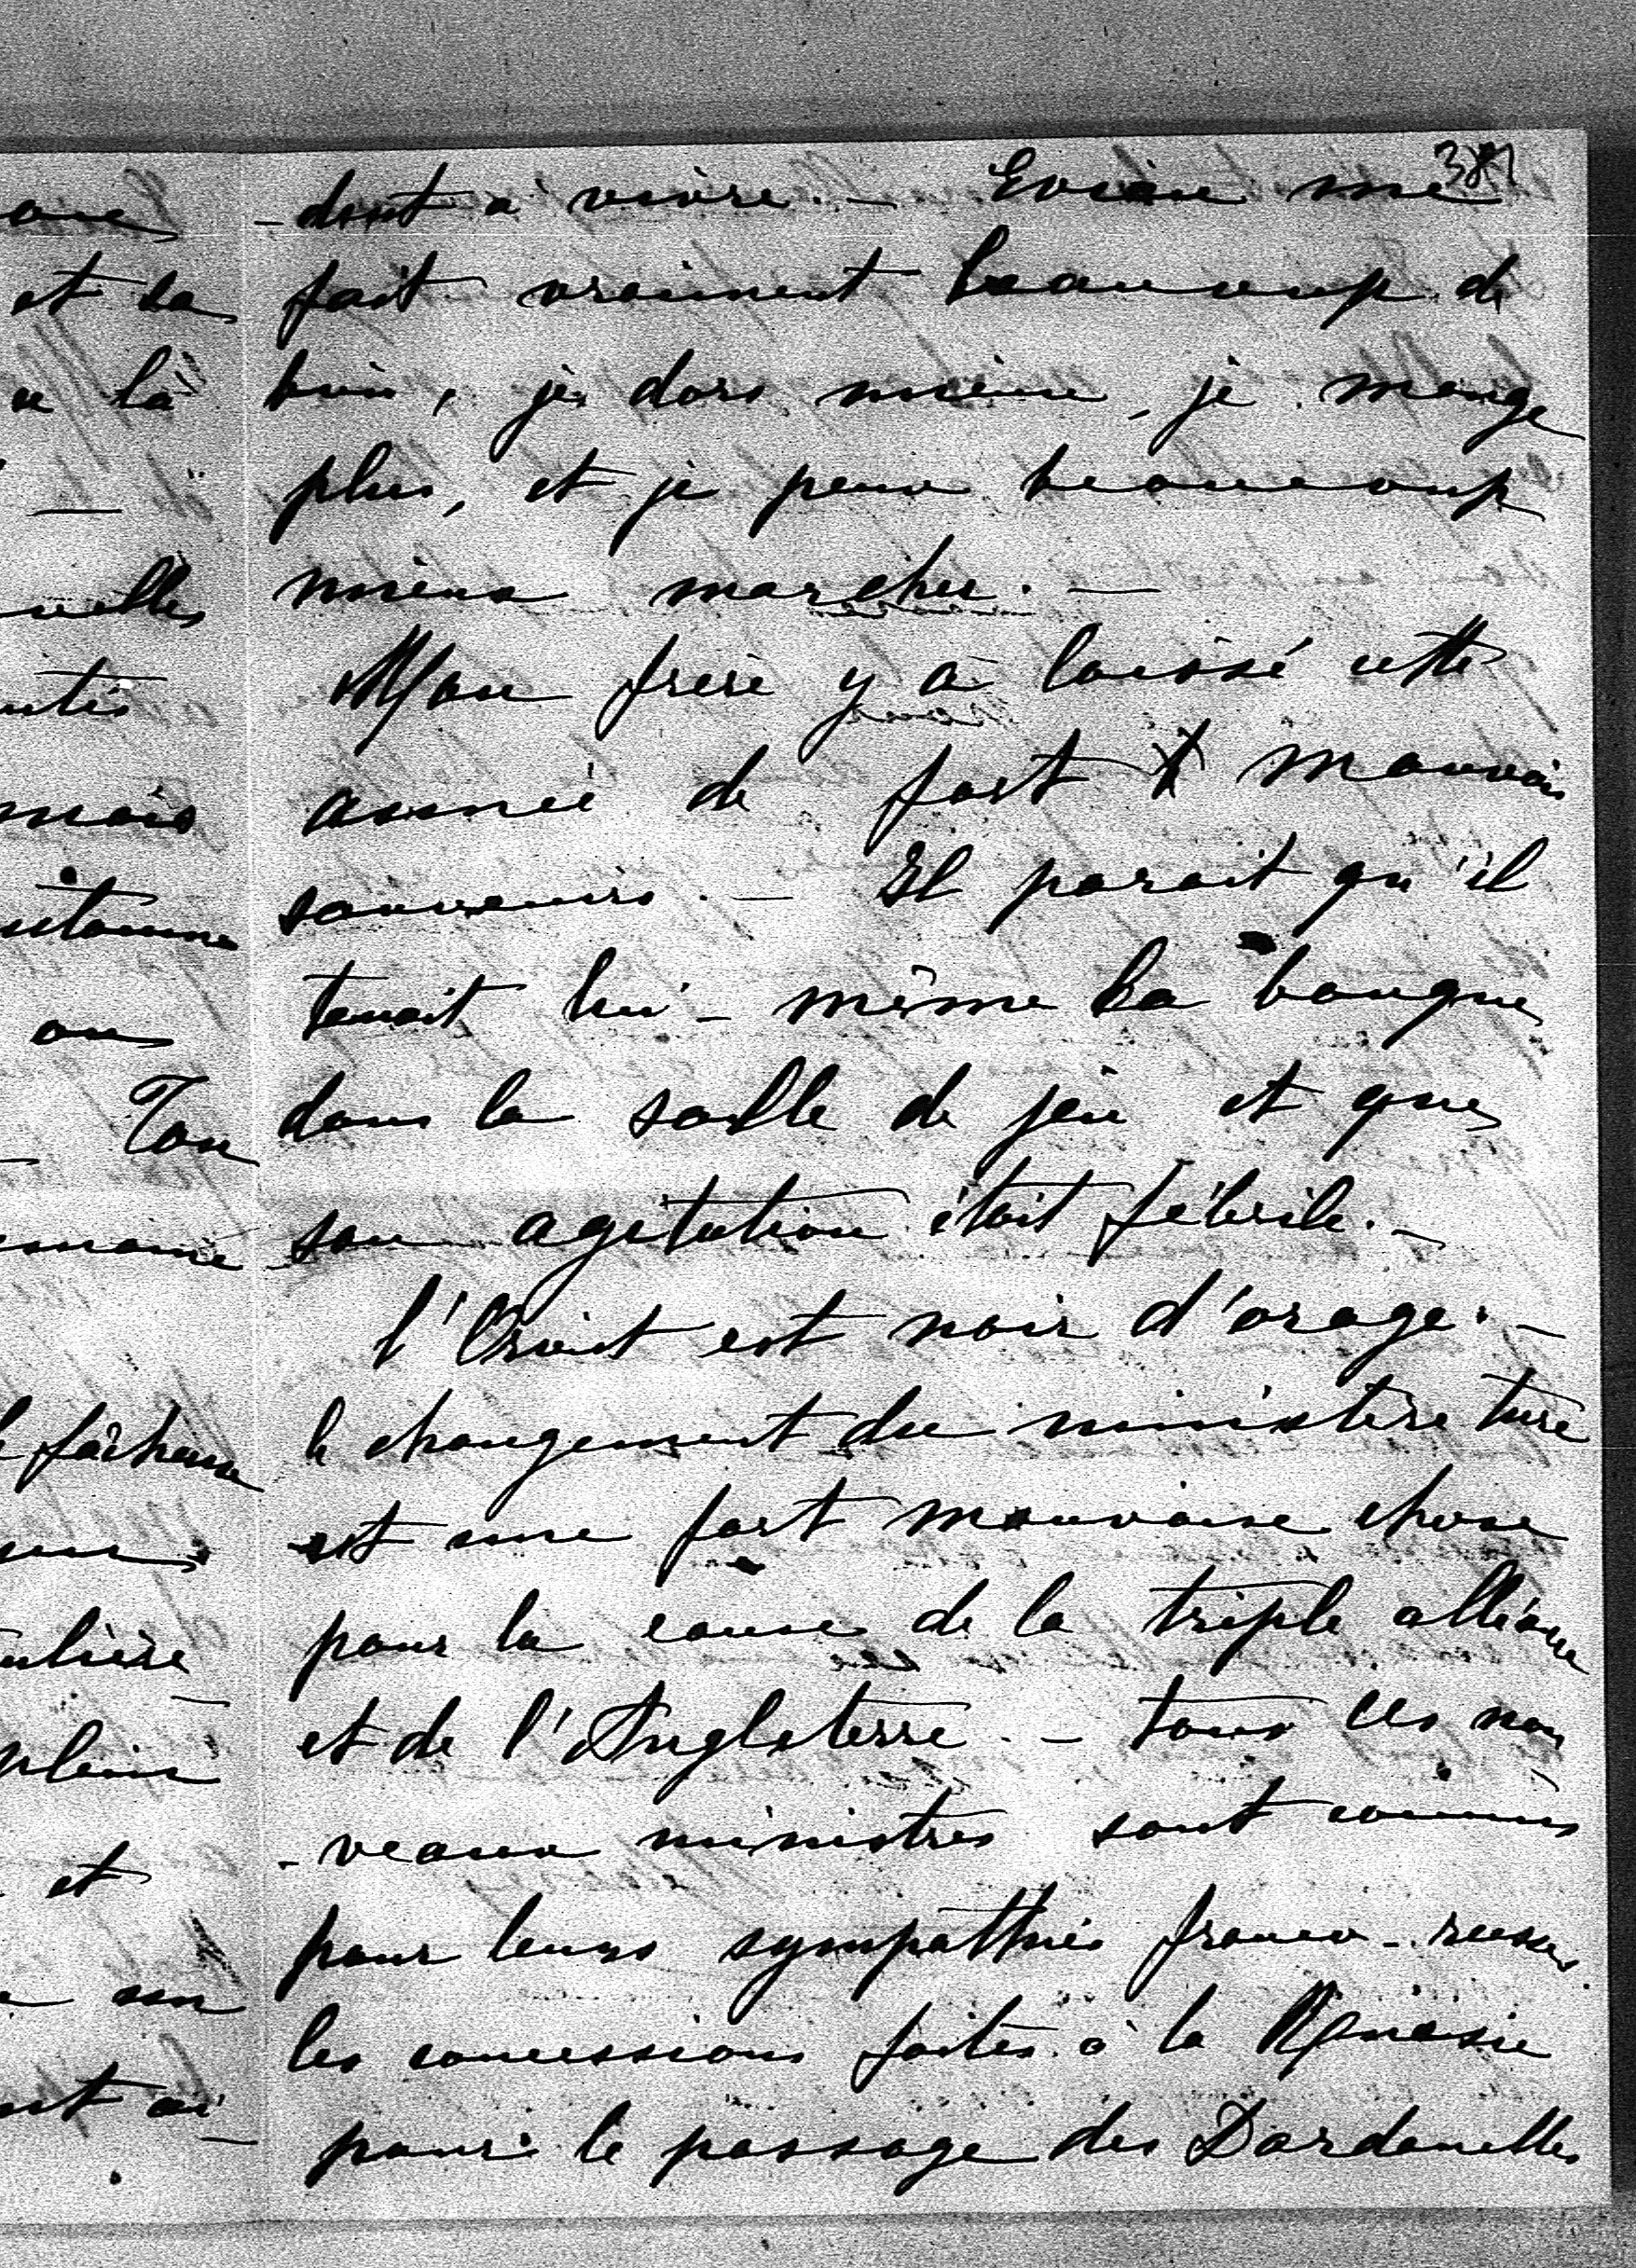 381
-dent à vivre. — Evian me
fait vraiment beaucoup de
bien, je dors mieux, je mange
plus, et je peux beaucoup
mieux marcher. —
Mon frère y a laissé cette
année de fort mauvais
souvenirs. — Il parait qu'il
tenait lui-même la banque
dans la salle de jeu et que
son agitation était fébrile. —
l'Orient est noir d'orage. —
le changement du ministère turc
est une fort mauvaise chose
pour la cause de la triple alliance
et de l'Angleterre. — tous ces nou
-veaux ministres sont connus
pour leurs sympathies franco-russes.
les concessions faites à la Russie
pour le passage des Dardanelles
et sa
a là
—
velles
mais
automne
ou
Ton
fâcheuse
plein
et
un